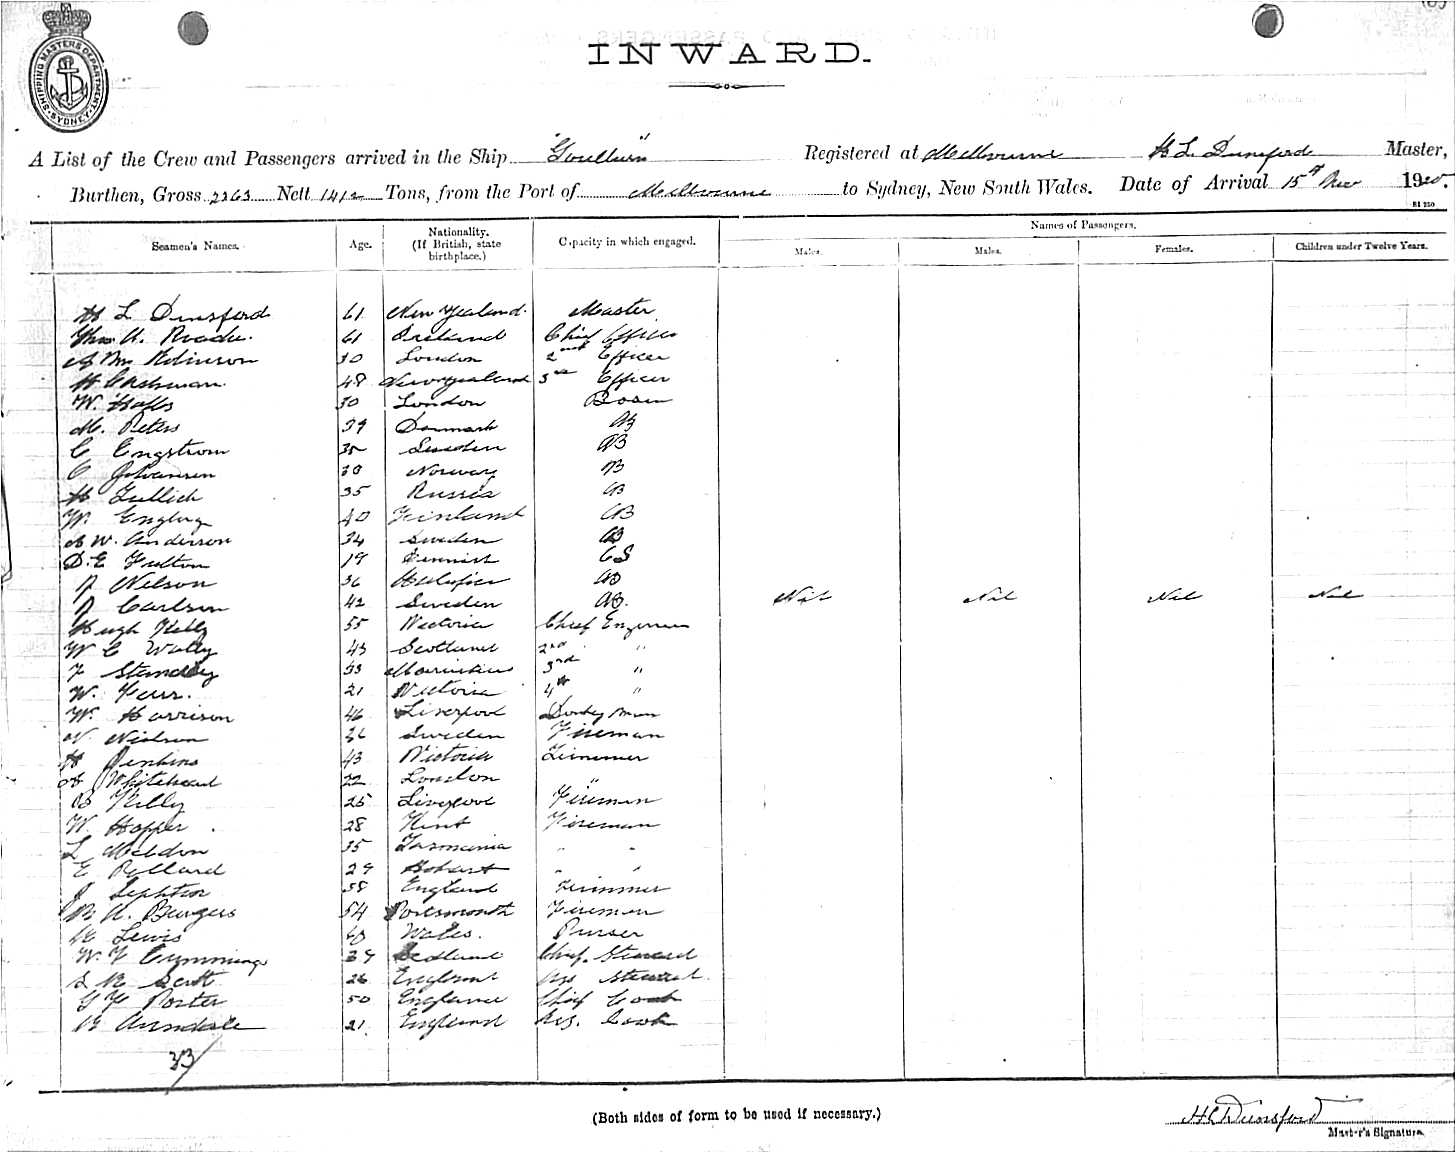 SHIPPING MASTERS DEPARTMENT SYDNEY
INWARD.
A List of the Crew and Passengers arrived in the Ship "Goulburn" Registered at Melbourne H L Dunsford Master,
Burthen, Gross 2263 Nett 1412 Tons, from the Port of Melbourne to Sydney, New South Wales. Date of Arrival 15th Nov 1920.
81 250
Seamen's Names. Age. Nationality. (If British, state birthplace.) Capacity in which engaged. Names of Passengers.
Males. Males. Females. Children under Twelve Years.
H L Dunsford 61 New Zealand Master
A. 61 Ireland Chief Officer
A Robinson 30 London 2nd Officer
H Cashman 48 New Zealand 3rd Officer
W. 30 London Bosun
M. Peters 39 Denmark AB
C Engstrom 35 Sweden AB
C Johansen 30 Norway AB
H 35 Russia AB
W. 40 Finland AB
A W. Anderson 34 Sweden AB
D. E Fulton 19 OS
J Nelson 36 Halifax AB
J Carlson 42 Sweden AB. Nil Nil Nil Nil
Hugh Kelly 55 Victoria Chief Engineer
W C 43 Scotland 2nd "
F Standley 33 Mauritius 3rd "
W. 21 Victoria 4th "
W. Harrison 46 Liverpool Donkeyman
N. Nielson 26 Sweden Fireman
H Jenkins 43 Victoria Trimmer
A Whitehead 22 London "
B Kelly 25 Liverpool Fireman
W. Hopper 28 Kent Fireman
L Weldon 35 Tasmania " "
E Pollard 29 Hobart " "
J Sephton 38 England Trimmer
A. Burgess 54 Portsmouth Fireman
Lewis 60 Wales. Purser
W. F Cummings 39 Scotland Chief. Steward
Scott 26 England Steward
G F Porter 50 England Chief Cook
21 England Cook
33
(Both sides of form to be used if necessary.)
H L Dunsford
Master's Signature.